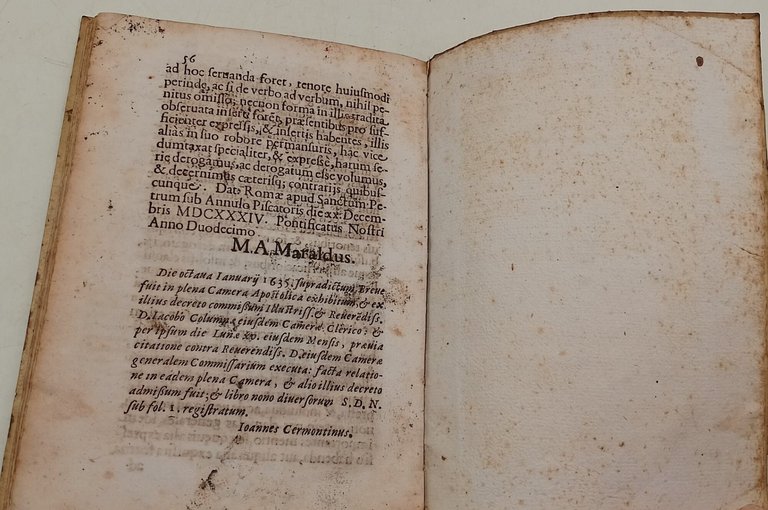 56
ad hoc seruanda foret, tenore huiusmodi
perinde, ac si de verbo ad verbum, nihil pe-
nitus omisso; necnon forma in illis tradita
obseruata inserti forent, præsentibus pro suf-
ficienter expressis, & insertis habentes, illis
alias in suo robbore permansuris, hac vice
dumtaxat specialiter, & expresse, harum se-
rie derogamus, ac derogatum esse volumus,
& decernimus cæterisq; contrarijs quibus-
cunque. Dat. Romæ apud Sanctum Pe-
trum sub Annulo Piscatoris die xx. Decem-
bris MDCXXXIV. Pontificatus Nostri
Anno Duodecimo.
M.A.Maraldus.
Die octaua Ianuarij 1635. supradictum Breue
fuit in plena Camera Apostolica exhibitum, & ex
illius decreto commissum Illustriss. & Reuerendiss.
D. Iacobo Columnæ eiusdem Cameræ Clerico, &
per ipsum die Lunæ xv. eiusdem Mensis, præuia
citatione contra Reuerendiss. D. eiusdem Cameræ
generalem Commissarium executa; facta relatio-
ne in eadem plena Camera, & alio illius decreto
admissum fuit; & libro nono diuersorum S. D. N.
sub fol. 1. registratum.
Ioannes Cermontinus.